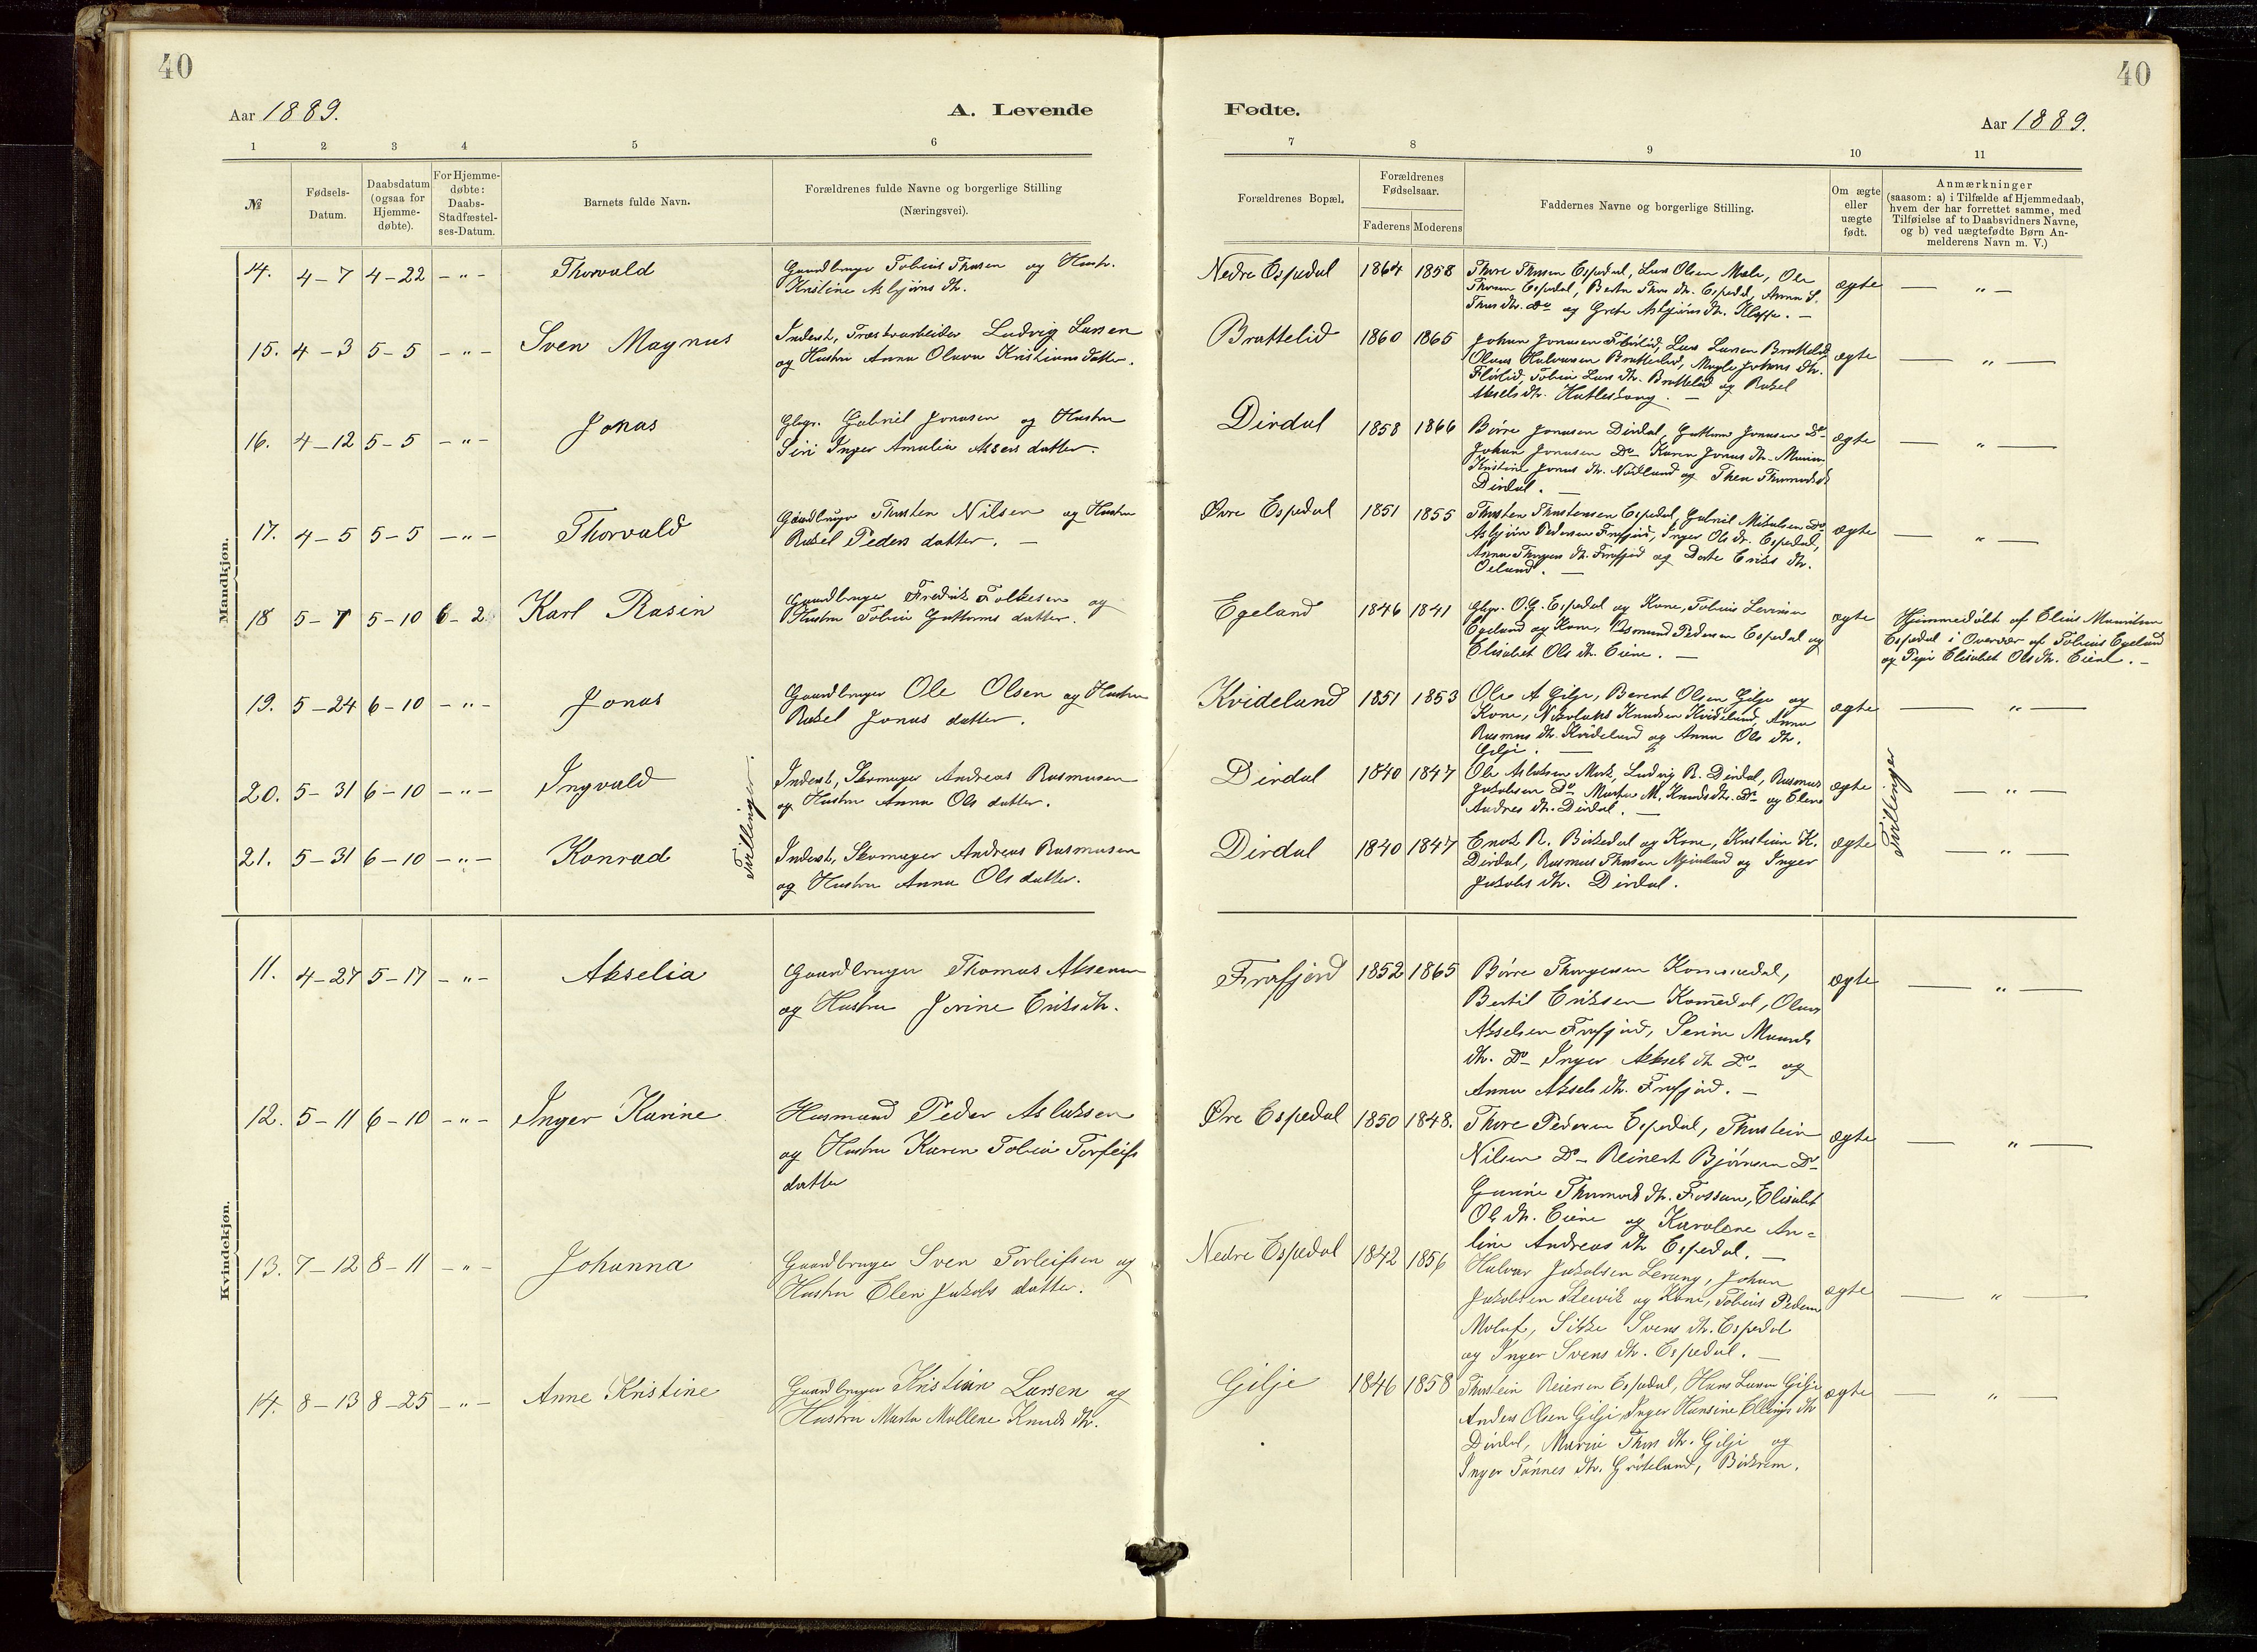 40
Aar 1889.
A. Levende
1 2 3 4 5 6
№
Fødsels-
Datum.
Daabsdatum
(ogsaa for
Hjemme-
døbte).
For Hjemme-
døbte:
Daabs-
Stadfæstel-
ses-Datum.
Barnets fulde Navn.
Forældrenes fulde Navne og borgerlige Stilling
(Næringsvei).
Mandkjøn.
14. 4-7 4-22 -"- Thorvald
Gaardbruger Tobias Thorsen og Hustr.
Kristine Asbjørns dtr.
15. 4-3 5-5 -"- Sven Magnus
Inderst, Ludvig Larsen
og Hustru Anna Olava Kristians datter.
16. 4-12 5-5 -"- Jonas
Gbgr. Gabriel Jonasen og Hustru
Siri Inger Amalia datter.
17. 4-5 5-5 -"- Thorvald
Gaardbruger Thorsten Nilsen og Hustru
Rakel Peders datter. -
18 5-7 5-10 6-2 Karl Rasin
Gaardbruger Fredrik Folkesen og
Hustru Tobia Guttorms datter.
19. 5-24 6-10 -"- Jonas
Gaardbruger Ole Olsen og Hustru
Rakel Jonas datter.
20. 5-31 6-10 -"- Ingvald
Inderst, Skomager Andreas Rasmusen
og Hustru Anna Ols datter.
21. 5-31 6-10 -"- Konrad
Inderst, Skomager Andreas Rasmusen
og Hustru Anna Ols datter.
Tvillinger.
Kvindekjøn.
11. 4-27 5-17 -"- Akselia
Gaardbruger Thomas Aksensen
og Hustru Jorine Eriks dtr.
12. 5-11 6-10 -"- Inger Karine
Husmand Peder Aslaksen
og Hustru Karen Tobia Torleifs
datter
13. 7-12 8-11 -"- Johanna
Gaardbruger Sven Torleifsen og
Hustru Elen Jakobs datter.
14. 8-13 8-25 -"- Anne Kristine
Gaardbruger Kristian Larsen og
Hustru Marta Mallene Knuds dtr.
40
Fødte.
Aar 1889.
7 8 9 10 11
Forældrenes Bopæl.
Forældrenes
Fødselsaar.
Faderens Moderens
Faddernes Navne og borgerlige Stilling.
Om ægte
eller
uægte
født.
Anmærkninger
(saasom: a) i Tilfælde af Hjemmedaab,
hvem der har forrettet samme, med
Tilføielse af to Daabsvidners Navne,
og b) ved uægtefødte Børn An-
melderens Navn m. V.)
Nedre Espedal 1864 1858
Thore Thorsen Espedal, Lars Olsen Mæle, Ole
Thorsen Espedal, Berta Thors dtr. Espedal, Anna S.
Thors dtr. Do og Grete Asbjørns dtr. Kleppe. -
ægte - " -
Brattelid 1860 1865
Johan Jonasen Flørlid, Lars Larsen Brattelid
Olaus Halvorsen Brattelid, Johans dtr.
Flørlid, Tobia Lars dtr. Brattelid og Rakel
Aksels dtr. -
ægte - " -
Dirdal 1858 1866
Børre Jonasen Dirdal, Guttorm Jonasen Do
Johan Jonasen Do Karen Jonas dtr. Maria
Kristine Jonas dtr. Nødland og Thea
Dirdal. -
ægte - " -
Øvre Espedal 1851 1855
Thorsten Thorstensen Espedal, Gabriel Mikalsen Do
Asbjørn Pedersen Frafjord, Inger Ols dtr. Espedal,
Anna Thorgers dtr. Frafjord og Dorte Eriks dtr.
Oeland. -
ægte - " -
Egeland 1846 1841
Gbgr. O.G. Espedal og Kone, Tobias
Egeland og Kone, Osmund Pedersen Espedal og
Elisabet Ols dtr. Eiene. -
ægte
Hjemmedøbt af Elias Mauritsen
Espedal i Overvær af Tobias Egeland
og Pige Elisabet Ols dtr. Eiene. -
Kvideland 1851 1853
Ole A Gilje, Berent Olsen Gilje og
Kone, Knudsen Kvideland, Anna
Rasmus dtr. Kvideland og Anna Ols dtr.
Gilje. -
ægte - " -
Dirdal 1840 1847
Ole Aslaksen Ludvig R. Dirdal, Rasmus
Jakobsen Do Marta M. Knudsdtr. Do og Elen
Andreas dtr. Dirdal. -
ægte - " -
Dirdal 1840 1847
Enok R. Birkedal og Kone, Kristian K.
Dirdal, Rasmus Thorsen og Inger
Jakobs dtr. Dirdal.
ægte - " -
Tvillinger
Frafjord 1852 1865
Børre Thorgersen Kommedal,
Bertil Eriksen Komedal, Olaus
Akselsen Frafjord, Serine
dtr. Do Inger Aksels dtr. Do og
Anna Aksels dtr. Frafjord. -
ægte - " -
Øvre Espedal 1850 1848.
Thore Pedersen Espedal, Thorstein
Nilsen Do Reinert Bjørnsen Do
Gurine dtr. Fossan, Elisabet
Ols dtr. Eiene og Karolene An=
line Andreas dtr Espedal. -
ægte - " -
Nedre Espedal 1842 1856
Halvar Jakobsen Lerang, Johan
Jakobsen og Kone, Tobias Pedersen
Molaug, Sikke Svens dtr. Espedal
og Inger Svens dtr. Espedal. -
ægte - " -
Gilje 1846 1858
Thorstein Reiersen Espedal, Hans Larsen Gilje
Anders Olsen Gilje, Inger Hansine Ellings dtr
Dirdal, Maria Thors dtr. Gilje og
Inger Tønnes dtr. Grøteland, Birkrem.
ægte - " -